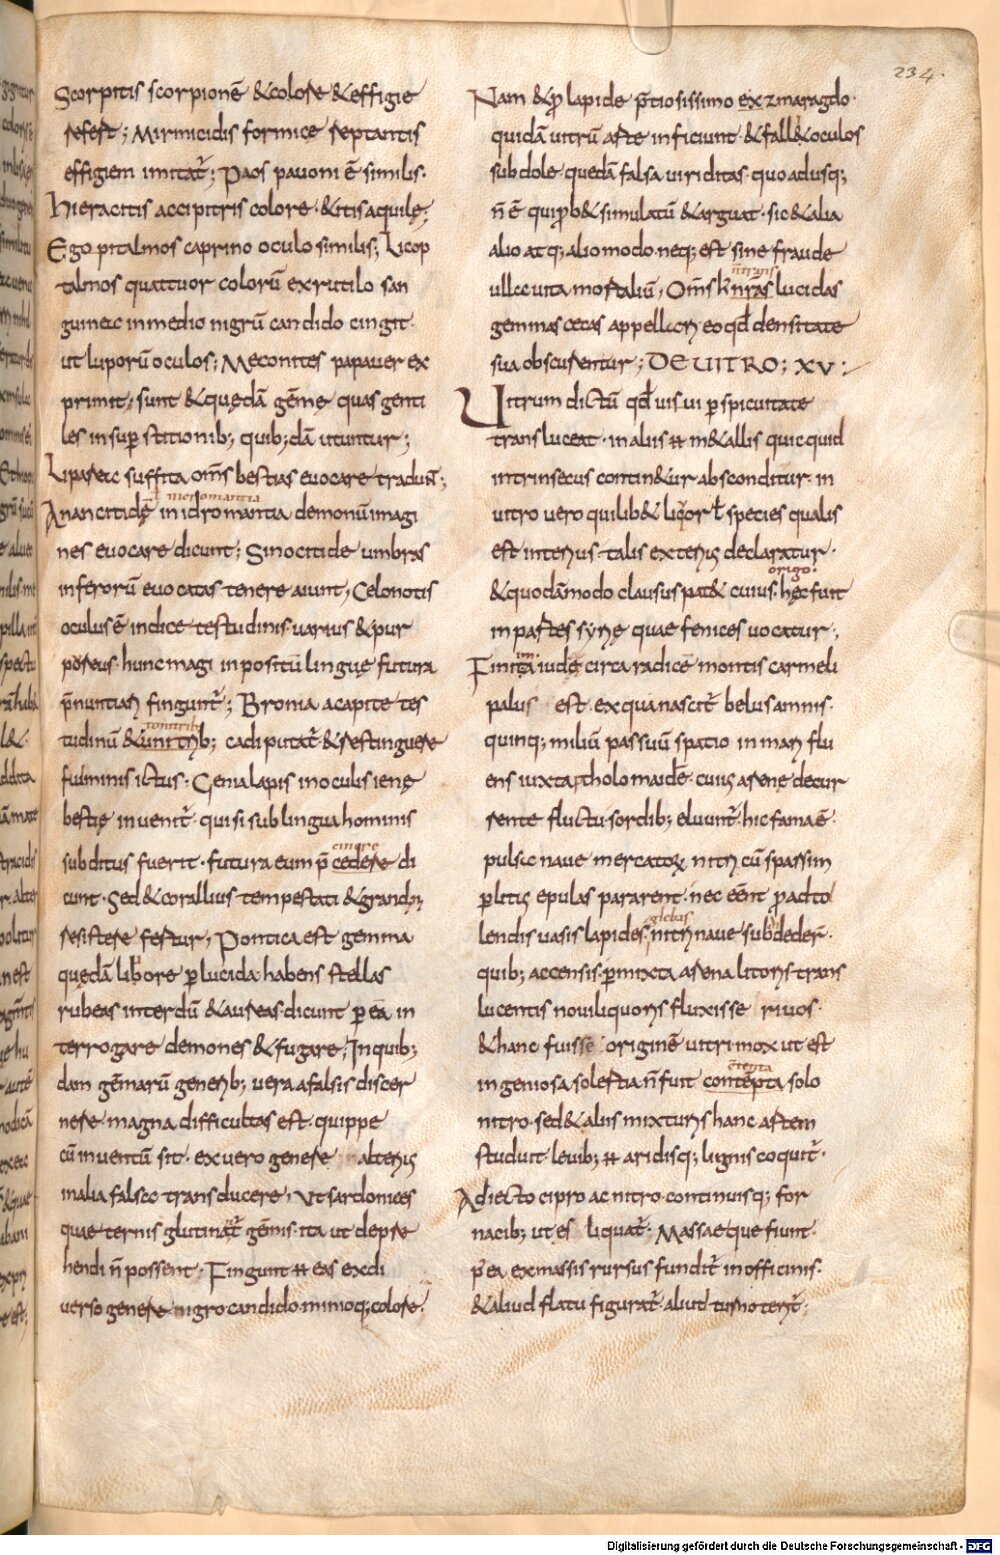 234.
Scorpitis scorpionē & colore & effigie
refert; Mirmicidis formice reptantis
effigiem imitat̄; Paos pavoni ē similis.
Hieracitis accipitris colore. &itis aquilę;
Ego pitalmos caprino oculo similis; Licop
talmos quattuor colorū ex rutilo san
guinea in medio nigrū candido cingit.
ut luporū oculos; Meconites papaver ex
primit; sunt & quędā gēmę quas genti
les in sup stitionib; quib;dā utuntur;
Liparea suffita om̄s bestias evocare tradun̄;
ł nicromantia
Anancitidę in idromantia demonū imagi
nes evocare dicunt; Sinocitide umbras
inferorū evocatas tenere aiunt; Celonotis
oculus ē indice testudinis varius & pur
poreus. hunc magi inpositū linguę futura
p̄nuntiare fingunt̄; Bronia a capite tes
tonitrib;
tudinū & unitrib; cadi putat̄ & restinguere
fulminis ictus. Genia lapis in oculis ienę
bestię invenit̄. qui si sub lingua hominis
cinere
subditus fuerit. futura eum p̄ cedere di
cunt. Sed & corallius tempestati & grandin;
resistere fertur; Pontica est gemma
quędā libore plucida habens stellas
rubeas interdū & aureas. dicunt p ea in
terrogare demones & fugare; In quib;
dam gēmarū generib; vera a falsis discer
nere magna difficultas est. quippe
cū inventū sit. ex vero genere alterius
in alia falsa transducere; Ut sardonices
quae ternis glutinat̄ gēmis. ita ut depre
hendi n̄ possent; Fingunt H eas ex di
verso genere. nigro candido minioq; colore.
Nam & p lapide p̄tiosissimo ex zmaragdo.
quidā vitrū arte inficiunt. & fall& oculos
sub dole quedā falsa viriditas. quoadusq;
n̄ ē qui prob& simulatū & arguat. sic & alia
alio atq; alio modo. neq; est sine fraude
n̄trans
ulla vita mortaliū; Om̄s h̄ n̄ras lucidas
gemmas cecas appellari eo qđ densitate
sua obscurentur; DE VITRO; XV:
Vitrum dictū qđ visui pspicuitate
transluceat. in aliis H m&allis quicquid
intrinsecus contin&ur absconditur. in
vitro vero quilib& liquor ł species qualis
est interius. talis exterius declaratur.
origo.
& quodāmodo clausus pat& cuius. hęc fuit
in partes syrię quae fenices vocatur;
im
Finita iudę circa radice montis carmeli
palus est. ex qua nascit̄ belus amnis.
quinq; miliū passuū spatio in mare flu
ens iuxta ptholomaidē. cuius arene decur
rente fluctu sordib; eluunt̄. hic fama ē.
pulsa nave mercatorum nitri cū spassim
p litus epulas pararent. nec eēnt p adto
glebas
lendis vasis lapides. nitri nave subdeder̄.
quib; accensis. pmixta arena litoris. trans
lucentis novi liquoris fluxisse rivos.
& hanc fuisse originē vitri. mox ut est
c̄tenta
ingeniosa solertia n̄ fuit contēpta solo
nitro. sed & aliis mixturis hanc artem
studuit. levib; H aridisq; lignis coquit̄.
Adiecto cipro ac nitro. continuisq; for
nacib; ut es liquat̄. Massaeque fiunt.
p̄ ea ex massis rursus fundit̄ in officinis.
& aliud flatu figurat̄. aliud turno terit̄;
Digitalisierung gefördert durch die Deutsche Forschungsgemeinschaft - DFG